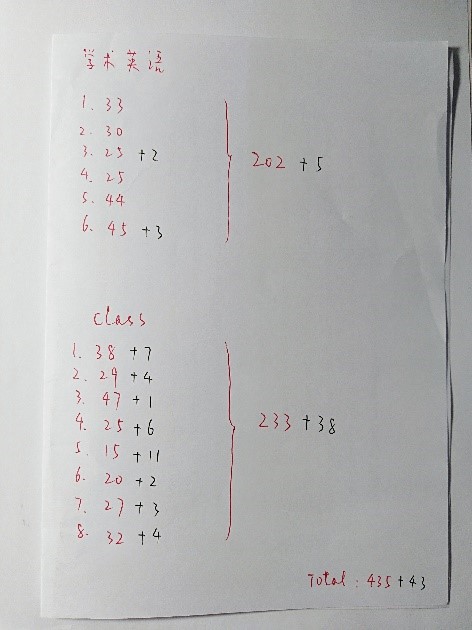 学术英语
1. 33
2. 30
3. 25 +2
4. 25
5. 44
6. 45 +3
202 +5
class
1. 38 +7
2. 29 +4
3. 47 +1
4. 25 +6
5. 15 +11
6. 20 +2
7. 27 +3
8. 32 +4
233 +38
Total : 435 +43